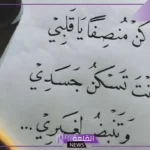 كن مُنصِفًا يَا قَلْبِي
أنتَ تَسكُنُ جَسَدِي
وَتَنبُضُ لِغَيرِي...
القلعة
NEWS